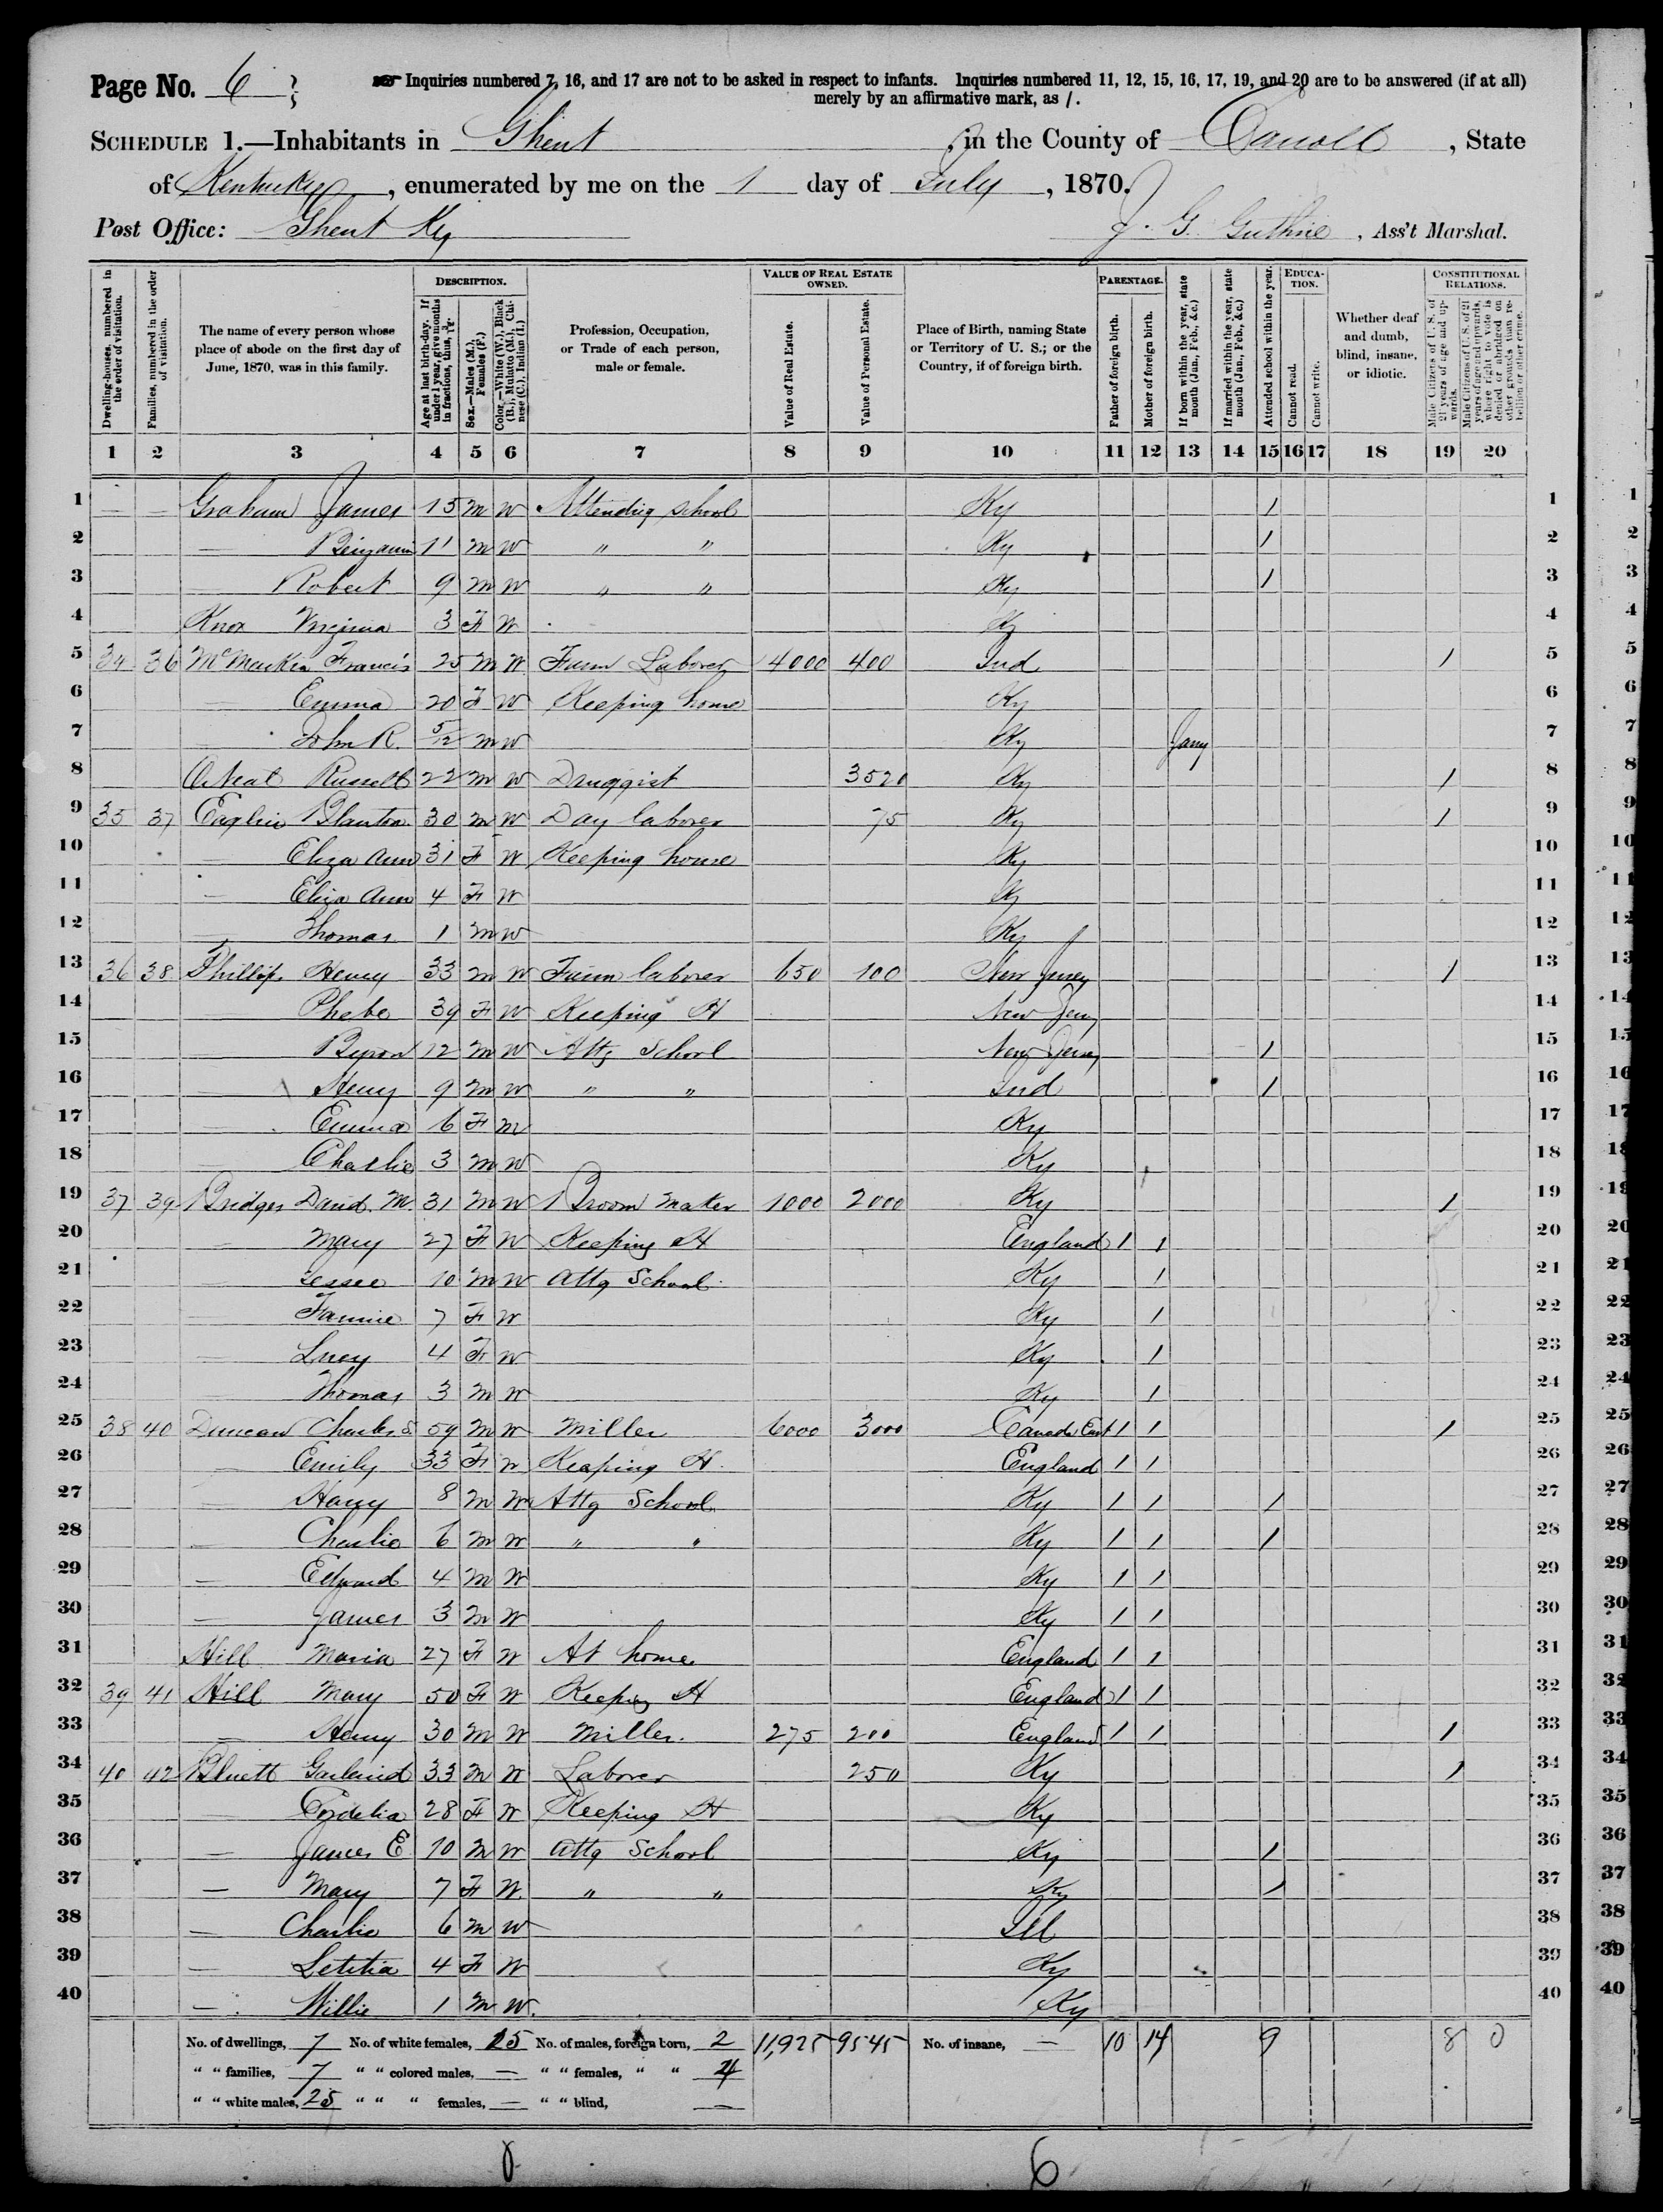 Page No. 6
Inquiries numbered 7, 16, and 17 are not to be asked in respect to infants. Inquiries numbered 11, 12, 15, 16, 17, 19, and 20 are to be answered (if at all)
merely by an affirmative mark, as /.
SCHEDULE 1.—Inhabitants in Ghent, in the County of Carroll, State
of Kentucky, enumerated by me on the 1 day of July, 1870.
Post Office: Ghent Ky J. G. Guthrie, Ass't Marshal.
Dwelling-houses, numbered in the order of visitation.
Families, numbered in the order of visitation.
The name of every person whose place of abode on the first day of June, 1870, was in this family.
DESCRIPTION.
Age at last birth-day. If under 1 year, give months in fractions, thus, 3/12.
Sex.—Males (M.), Females (F.)
Color.—White (W.), Black (B.), Mulatto (M.), Chinese (C.), Indian (I.)
Profession, Occupation, or Trade of each person, male or female.
VALUE OF REAL ESTATE OWNED.
Value of Real Estate.
Value of Personal Estate.
Place of Birth, naming State or Territory of U. S.; or the Country, if of foreign birth.
PARENTAGE.
Father of foreign birth.
Mother of foreign birth.
If born within the year, state month (Jan., Feb., &c.)
If married within the year, state month (Jan., Feb., &c.)
Attended school within the year.
EDUCATION.
Cannot read.
Cannot write.
Whether deaf and dumb, blind, insane, or idiotic.
CONSTITUTIONAL RELATIONS.
Male Citizens of U. S. of 21 years of age and upwards.
Male Citizens of U. S. of 21 years of age and upwards, whose right to vote is denied or abridged on other grounds than rebellion or other crime.
1 2 3 4 5 6 7 8 9 10 11 12 13 14 15 16 17 18 19 20
1 — — Graham James 15 M W Attending School Ky 1 1
2 — Benjamin 11 M W " " Ky 1 2
3 — Robert 9 M W " " Ky 1 3
4 Knox Virginia 3 F W Ky 4
5 34 36 Francis 25 M W Farm Laborer 4000 400 Ind 1 5
6 — Emma 20 F W Keeping house Ky 6
7 — John R. 5/12 M W Ky Jany 7
8 ONeal Russell 22 M W Druggist 3520 Ky 1 8
9 35 37 Eaglin Blanton 30 M W Day laborer 75 Ky 1 9
10 — Eliza Ann 31 F W Keeping house Ky 10
11 — Eliza Ann 4 F W Ky 11
12 — Thomas 1 M W Ky 12
13 36 38 Phillips Henry 33 M W Farm laborer 650 100 New Jersey 1 13
14 — Phebe 39 F W Keeping H New Jersey 14
15 — Byron 12 M W Attg School New Jersey 1 15
16 — Henry 9 M W " " Ind 1 16
17 — Emma 6 F W Ky 17
18 — Charlie 3 M W Ky 18
19 37 39 Bridges David. M. 31 M W Broom Maker 1000 2000 Ky 1 19
20 — Mary 27 F W Keeping H England 1 1 20
21 — Jessee 10 M W Attg School Ky 1 21
22 — Fannie 7 F W Ky 1 22
23 — Lucy 4 F W Ky 1 23
24 — Thomas 3 M W Ky 1 24
25 38 40 Duncan Charles S. 59 M W Miller 6000 3000 Canada East 1 1 1 25
26 — Emily 33 F W Keeping H. England 1 1 26
27 — Harry 8 M W Attg School Ky 1 1 1 27
28 — Charlie 6 M W " " Ky 1 1 1 28
29 — Edward 4 M W Ky 1 1 29
30 — James 3 M W Ky 1 1 30
31 Hill Maria 27 F W At home England 1 1 31
32 39 41 Hill Mary 50 F W Keeping H England 1 1 32
33 — Henry 30 M W Miller. 275 200 England 1 1 1 33
34 40 42 Bluett Garland 33 M W Laborer 250 Ky 1 34
35 — Cordelia 28 F W Keeping H Ky 35
36 — James E 10 M W Attg School Ky 1 36
37 — Mary 7 F W " " Ky 1 37
38 — Charlie 6 M W Ill 38
39 — Letitia 4 F W Ky 39
40 — Willie 1 M W. Ky 40
No. of dwellings, 7 No. of white females, 15 No. of males, foreign born, 2 11,925 9545 No. of insane, — 10 14 9 8 0
" " families, 7 " " colored males, — " " females, " " 4
" " white males, 25 " " " females, — " " blind, —
6